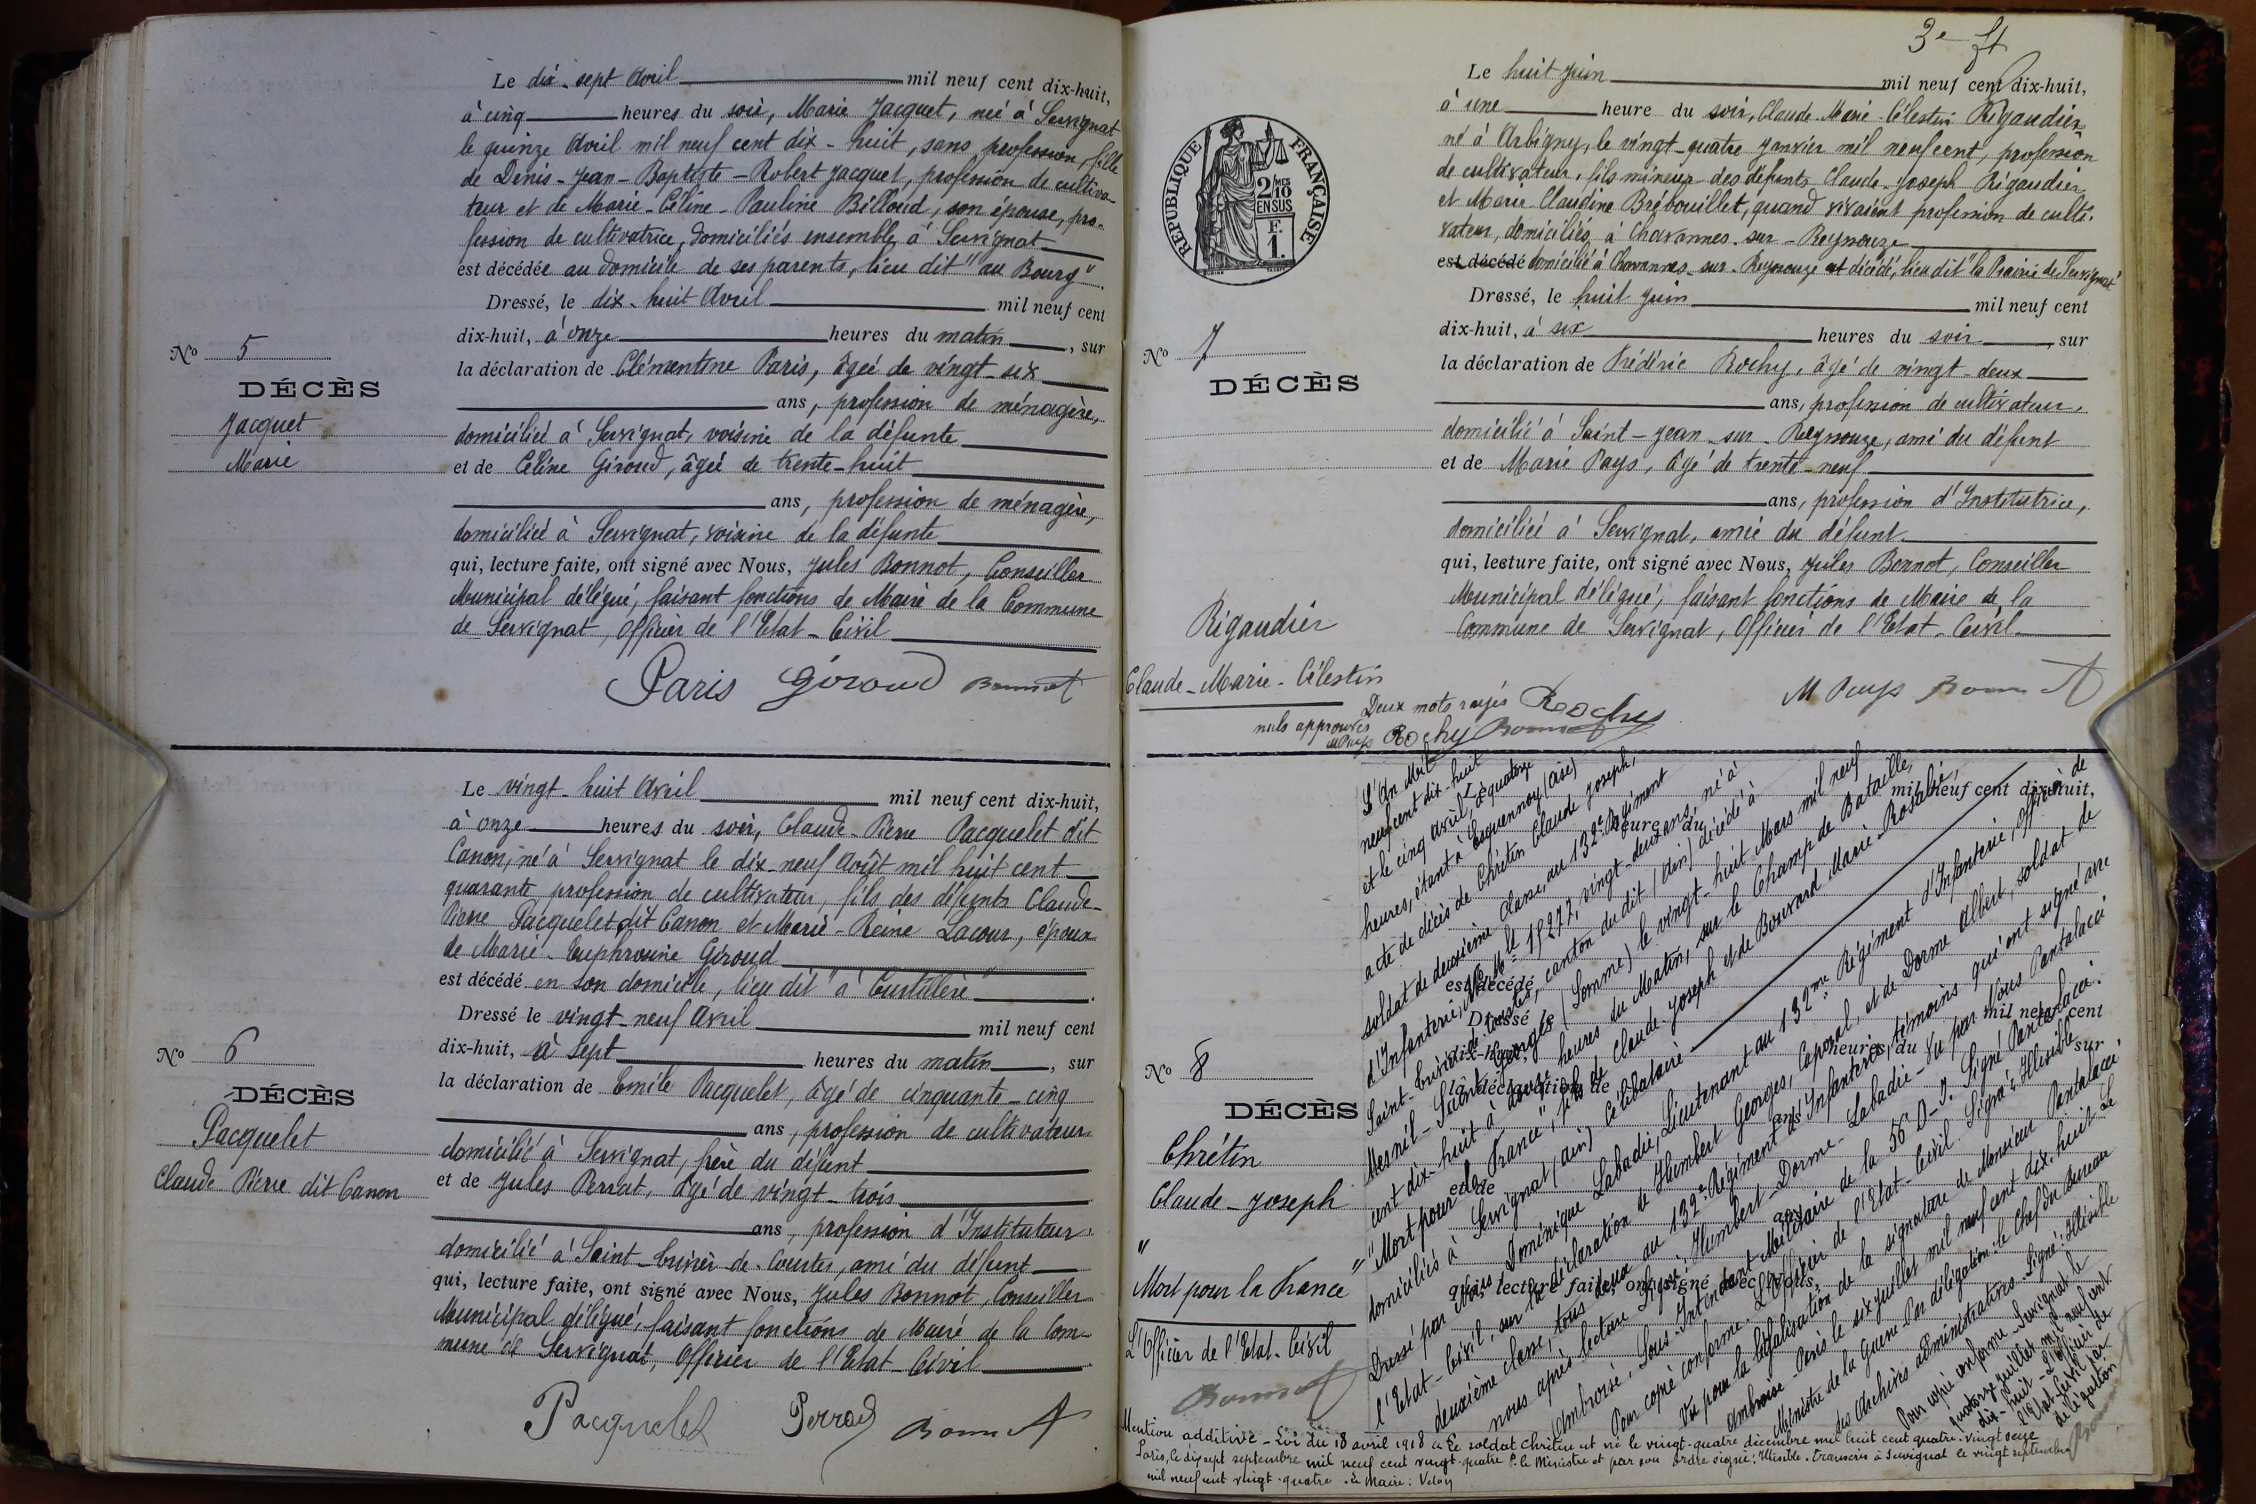 Le dix-sept Avril mil neuf cent dix-huit,
à cinq heures du soir, Marie Jacquet, née à Servignat
le quinze Avril mil neuf cent dix-huit, sans profession, fille
de Denis-Jean-Baptiste-Robert Jacquet, profession de cultiva-
teur et de Marie-Céline-Pauline Billoud, son épouse, pro-
fession de cultivatrice, domiciliés ensemble à Servignat
est décédée au domicile de ses parents, lieu dit "au Bourg".
Dressé, le dix-huit Avril mil neuf cent
dix-huit, à onze heures du matin, sur
la déclaration de Clémentine Paris, âgée de vingt-six
ans, profession de ménagère,
domiciliée à Servignat, voisine de la défunte
et de Céline Giroud, âgée de trente-huit
ans, profession de ménagère,
domiciliée à Servignat, voisine de la défunte
qui, lecture faite, ont signé avec Nous, Jules Bonnot, Conseiller
Municipal délégué, faisant fonctions de Maire de la Commune
de Servignat, Officier de l'Etat-Civil
Paris Giroud Bonnot
No 5
DÉCÈS
Jacquet
Marie
Le vingt-huit Avril mil neuf cent dix-huit,
à onze heures du soir, Claude-Pierre Pacquelet dit
Canon, né à Servignat le dix-neuf Août mil huit cent
quarante profession de cultivateur, fils des défunts Claude-
Pierre Pacquelet dit Canon et Marie-Reine Lacour, époux
de Marie-Euphrosine Giroud
est décédé en son domicile, lieu dit "à
Dressé le vingt-neuf Avril mil neuf cent
dix-huit, à sept heures du matin, sur
la déclaration de Emile Pacquelet, âgé de cinquante-cinq
ans, profession de cultivateur
domicilié à Servignat, frère du défunt
et de Jules Perrat, âgé de vingt-trois
ans, profession d'Instituteur
domicilié à Saint-Julien-de-Courtes, ami du défunt
qui, lecture faite, ont signé avec Nous, Jules Bonnot, Conseiller
Municipal délégué, faisant fonctions de Maire de la Com-
mune de Servignat, Officier de l'Etat-Civil
Pacquelet Bonnot
No 6
DÉCÈS
Pacquelet
Claude Pierre dit Canon
3e
RÉPUBLIQUE FRANÇAISE
2/10 MES
EN SUS
F.
1.
Le huit Juin mil neuf cent dix-huit,
à une heure du soir, Claude-Marie-Célestin Rigaudier
né à Arbigny, le vingt-quatre Janvier mil neuf cent, profession
de cultivateur, fils mineur des défunts Claude-Joseph Rigaudier
et Marie-Claudine Brebouillet, quand vivaient profession de culti-
vateur, domiciliés à Chavannes-sur-Reyssouze
est décédé domicilié à Chavannes-sur-Reyssouze est décédé, lieu dit "la Prairie de Servignat"
Dressé, le huit Juin mil neuf cent
dix-huit, à six heures du soir, sur
la déclaration de Frédéric Rochy, âgé de vingt-deux
ans, profession de cultivateur,
domicilié à Saint-Jean-sur-Reyssouze, ami du défunt
et de Marie Pays, âgé de trente-neuf
ans, profession d'Institutrice,
domiciliée à Servignat, amie du défunt.
qui, lecture faite, ont signé avec Nous, Jules Bonnot, Conseiller
Municipal délégué, faisant fonctions de Maire de la
Commune de Servignat, Officier de l'Etat-Civil
No 7
DÉCÈS
Rigaudier
Claude-Marie-Célestin
Deux mots rayés Rochy M Pays Bonnot
nuls approuvés
M Pays Rochy Bonnot
L'An Mil
neuf cent dix-huit
et le cinq Avril à quatorze
heures, étant à Esquennoy (Oise)
acte de décès de Chrétin Claude Joseph,
soldat de deuxième classe, au 132e Régiment
d'Infanterie, Mle 18277, vingt-deux ans, né à
Saint-Julien de Courtes, canton du dit (Ain) décédé à
Mesnil-Saint-Georges (Somme) le vingt-huit Mars mil neuf
cent dix-huit à heures du Matin, sur le Champ de Bataille,
"Mort pour la France", fils de Claude-Joseph et de Bouvard Marie-Rosalie
domiciliés à Servignat (Ain) Célibataire
Dressé par Nous Dominique Labadie, Lieutenant au 132me Régiment d'Infanterie, Officier de
l'Etat-Civil, sur la déclaration de Humbert Georges, Caporal, et de Dorme Albert, soldat de
deuxième classe, tous deux au 132e Régiment d'Infanterie, témoins qui ont signé avec
nous après lecture. Signé: Humbert-Dorme-Labadie-Vu par Nous Pantalacci
Ambroise, Sous-Intendant Militaire de la 56 D-I. Signé Pantalacci.
Pour copie conforme. L'Officier de l'Etat-Civil. Signé: Illisible
Vu pour la légalisation de la signature de Monsieur Pantalacci
Ambroise-Paris le six juillet mil neuf cent dix-huit Le
Ministre de la Guerre. Par délégation-le Chef du Bureau
des Archives administratives. Signé: Illisible
Pour copie conforme-Servignat le
quatorze juillet mil neuf cent
dix-huit-L'Officier de
l'Etat-Civil par
délégation
Bonnot
mil neuf cent dix-huit,
heure du
est décédé
Dressé le mil neuf cent
dix-huit, heures du sur
la déclaration de
ans
et de
ans
qui, lecture faite, ont signé avec Nous,
No 8
DÉCÈS
Chrétin
Claude-Joseph
"Mort pour la France"
L'Officier de l'Etat-Civil
Bonnot
Mention additive-Loi du 18 avril 1918 Le soldat Chrétin est né le vingt-quatre décembre mil huit cent quatre-vingt-
Paris, le dix sept septembre mil neuf cent vingt-quatre P. le Ministre et par son ordre signé: Illisible. Transcris à Servignat le vingt septembre
mil neuf cent vingt-quatre. Le Maire: